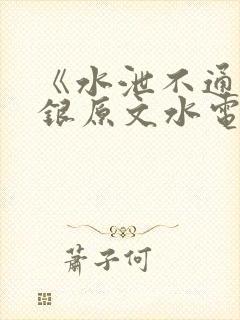 《水泄不通
银原文水電
萧子何